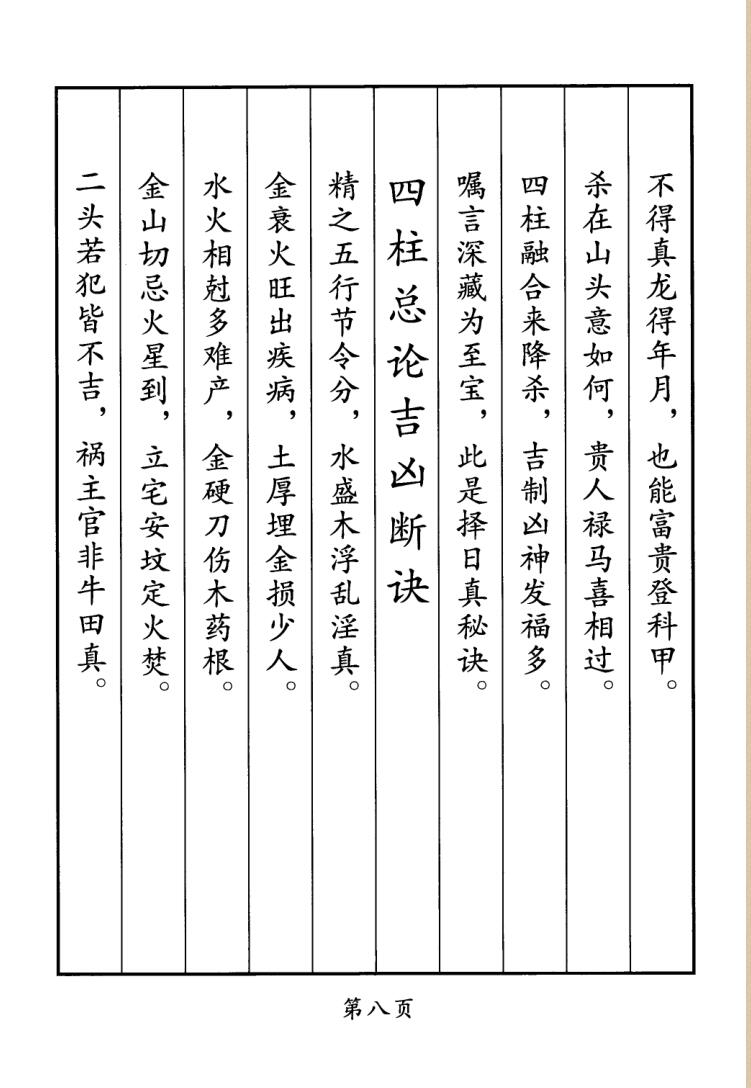 不得真龙得年月，也能富贵登科甲。
杀在山头意如何，贵人禄马喜相过。
四柱融合来降杀，吉制凶神发福多。
嘱言深藏为至宝，此是择日真秘诀。
四柱总论吉凶断诀
精之五行节令分，水盛木浮乱淫真。
金衰火旺出疾病，土厚埋金损少人。
水火相尅多难产，金硬刀伤木药根。
金山切忌火星到，立宅安坟定火焚。
二头若犯皆不吉，祸主官非牛田真。
第八页